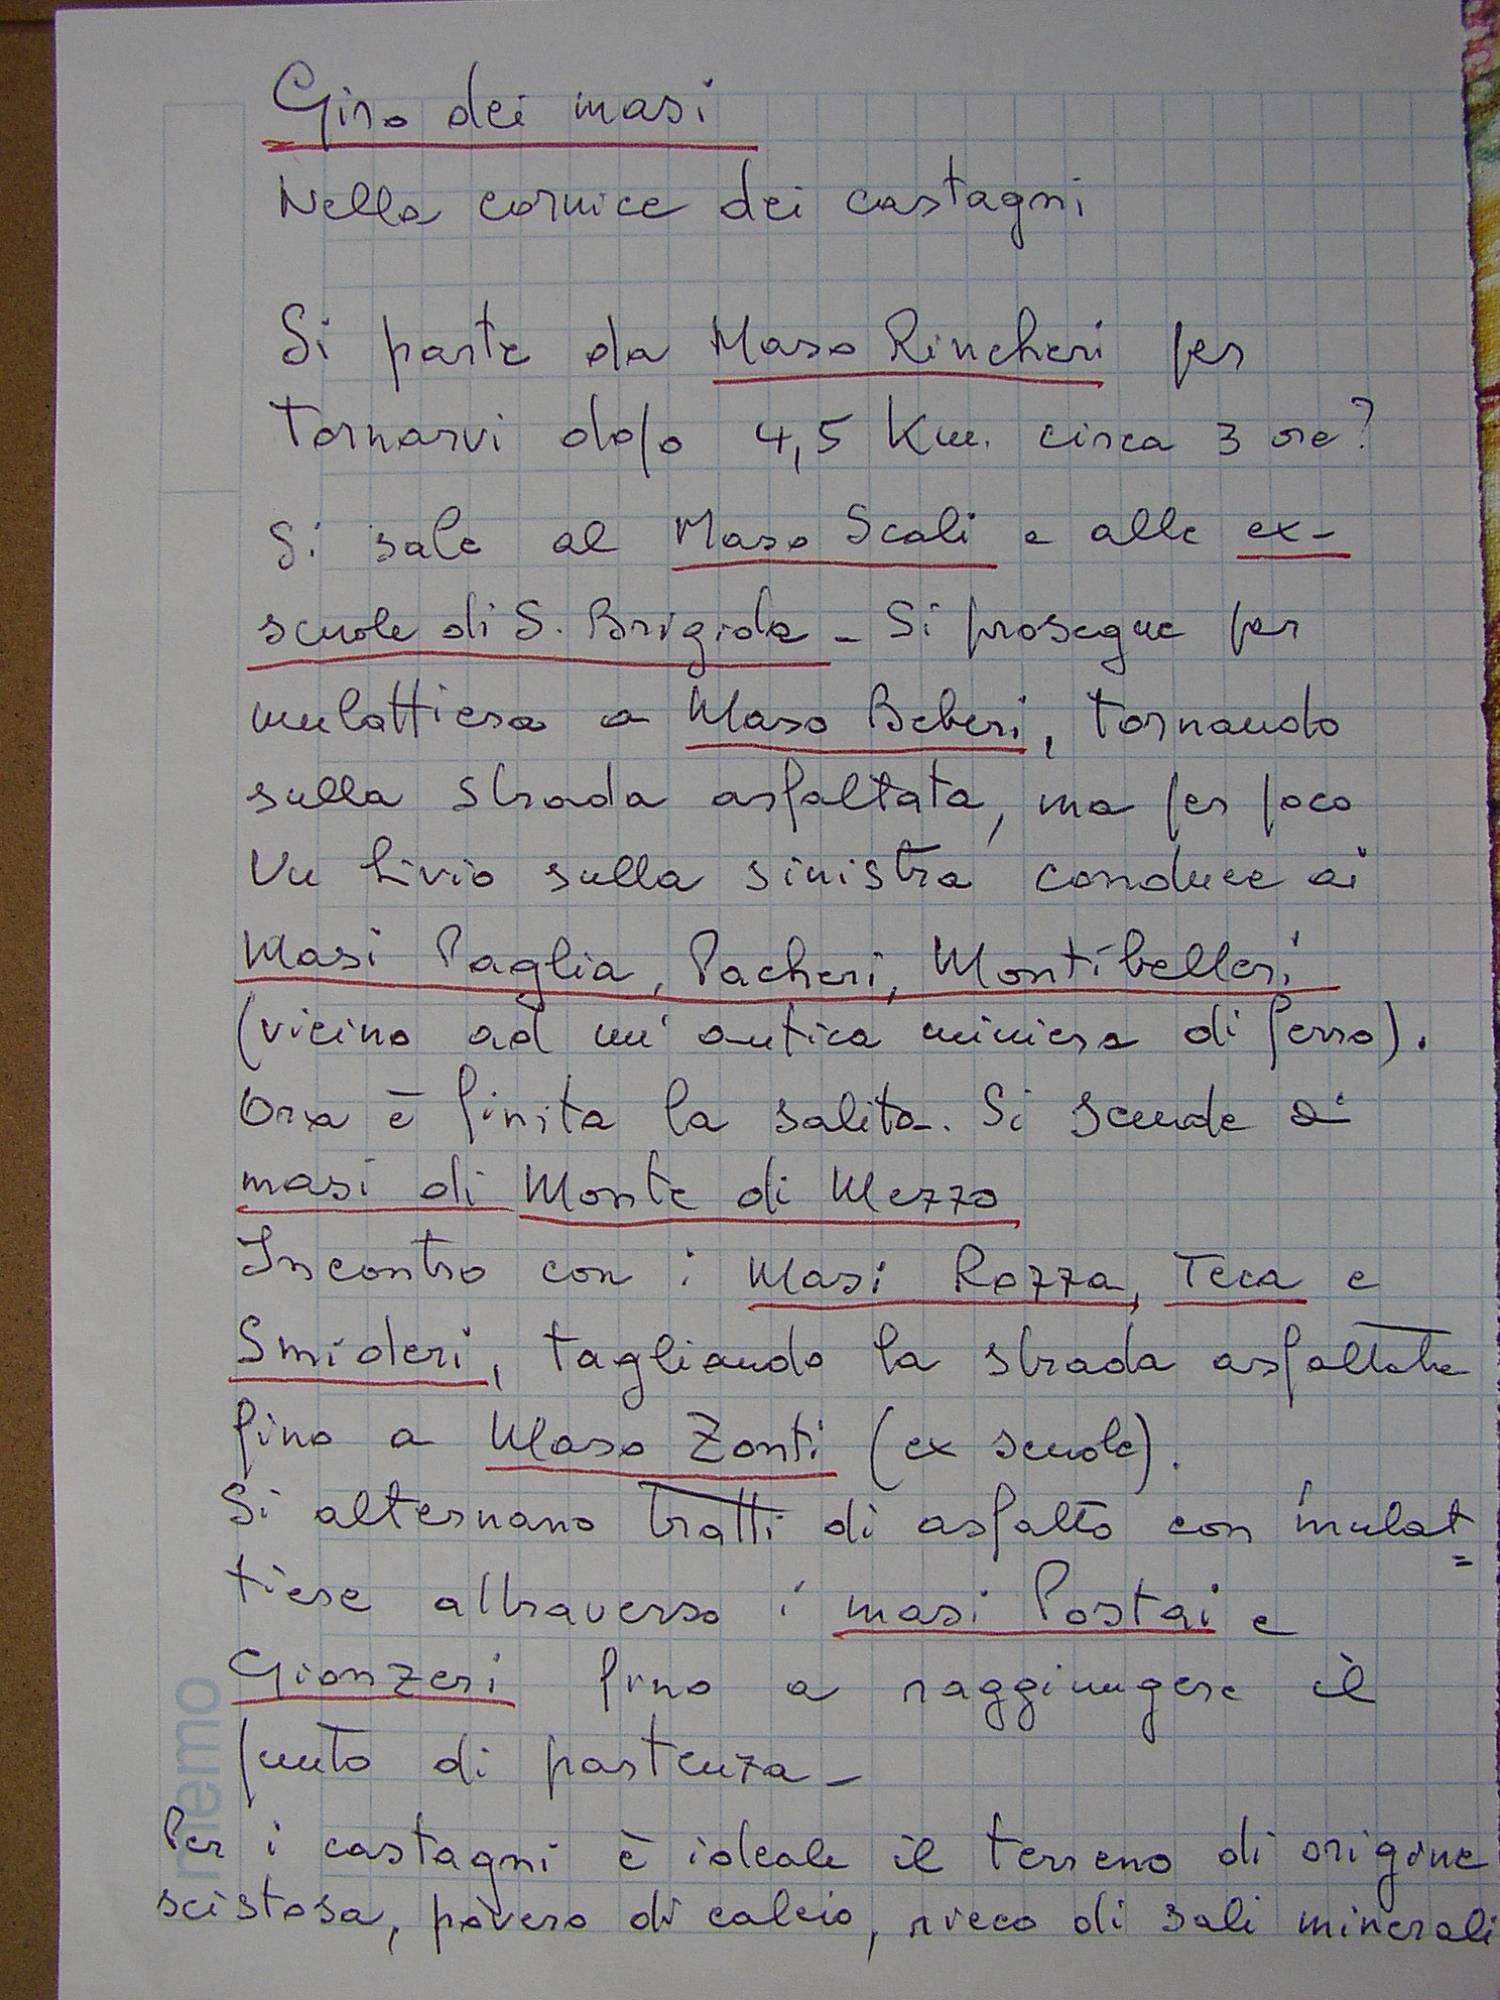 Giro dei masi
Nella cornice dei castagni
Si parte da Maso Rincheri per
tornarvi dopo 4,5 Km. circa 3 ore?
Si sale al Maso Scali e alle ex-
scuole di S. Brigida - Si prosegue per
mulattiera a Maso Beberi, tornando
sulla strada asfaltata, ma per poco
Un bivio sulla sinistra conduce ai
Masi Paglia, Pacheri, Montibelleri
(vicino ad un'antica miniera di ferro).
Ora è finita la salita. Si scende ai
masi di Monte di Mezzo
Incontro con i Masi Rozza, Teca e
Smideri, tagliando la strada asfaltata
fino a Maso Zonti (ex scuole).
Si alternano tratti di asfalto con mulat=
tiere attraverso i masi Postai e
Gionzeri fino a raggiungere il
punto di partenza -
Per i castagni è ideale il terreno di origine
scistosa, povero di calcio, ricco di sali minerali
memo